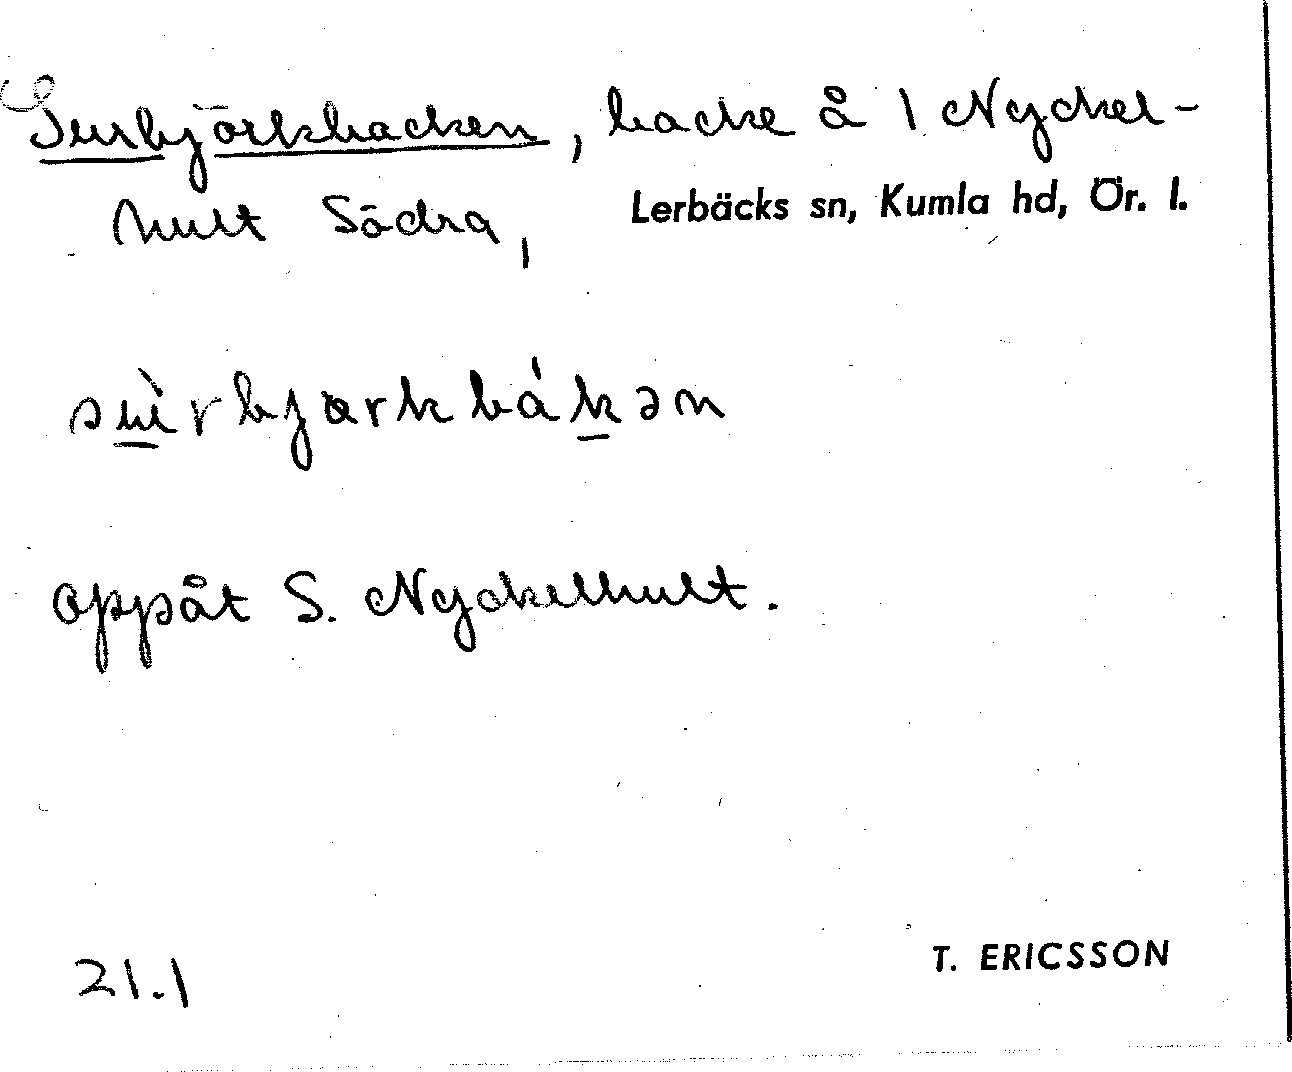 Surbjörkbacken, backe å 1 Nyckel-
hult Södra, Lerbäcks sn, Kumla hd, Ör. l.
su̱̇̀rbjɑrkbáḵən
oppåt S. Nyckelhult.
21.1 T. ERICSSON